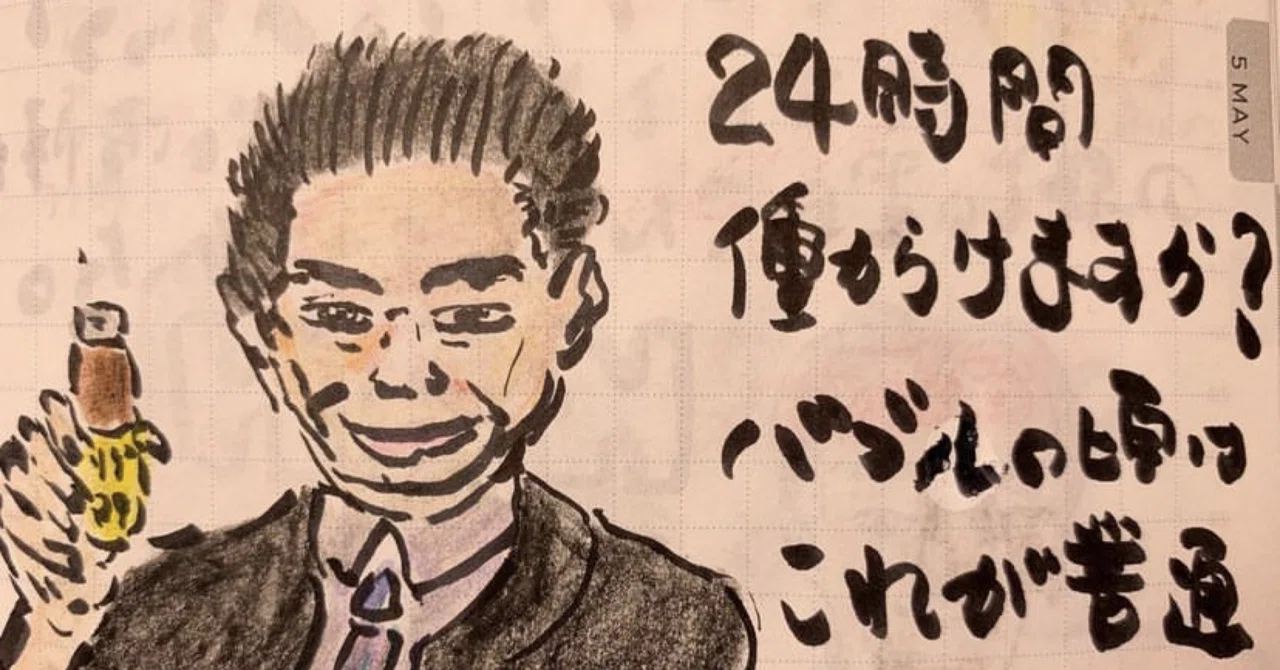 24時間
働からけますか?
バブルの頃は
これが普通
5 MAY